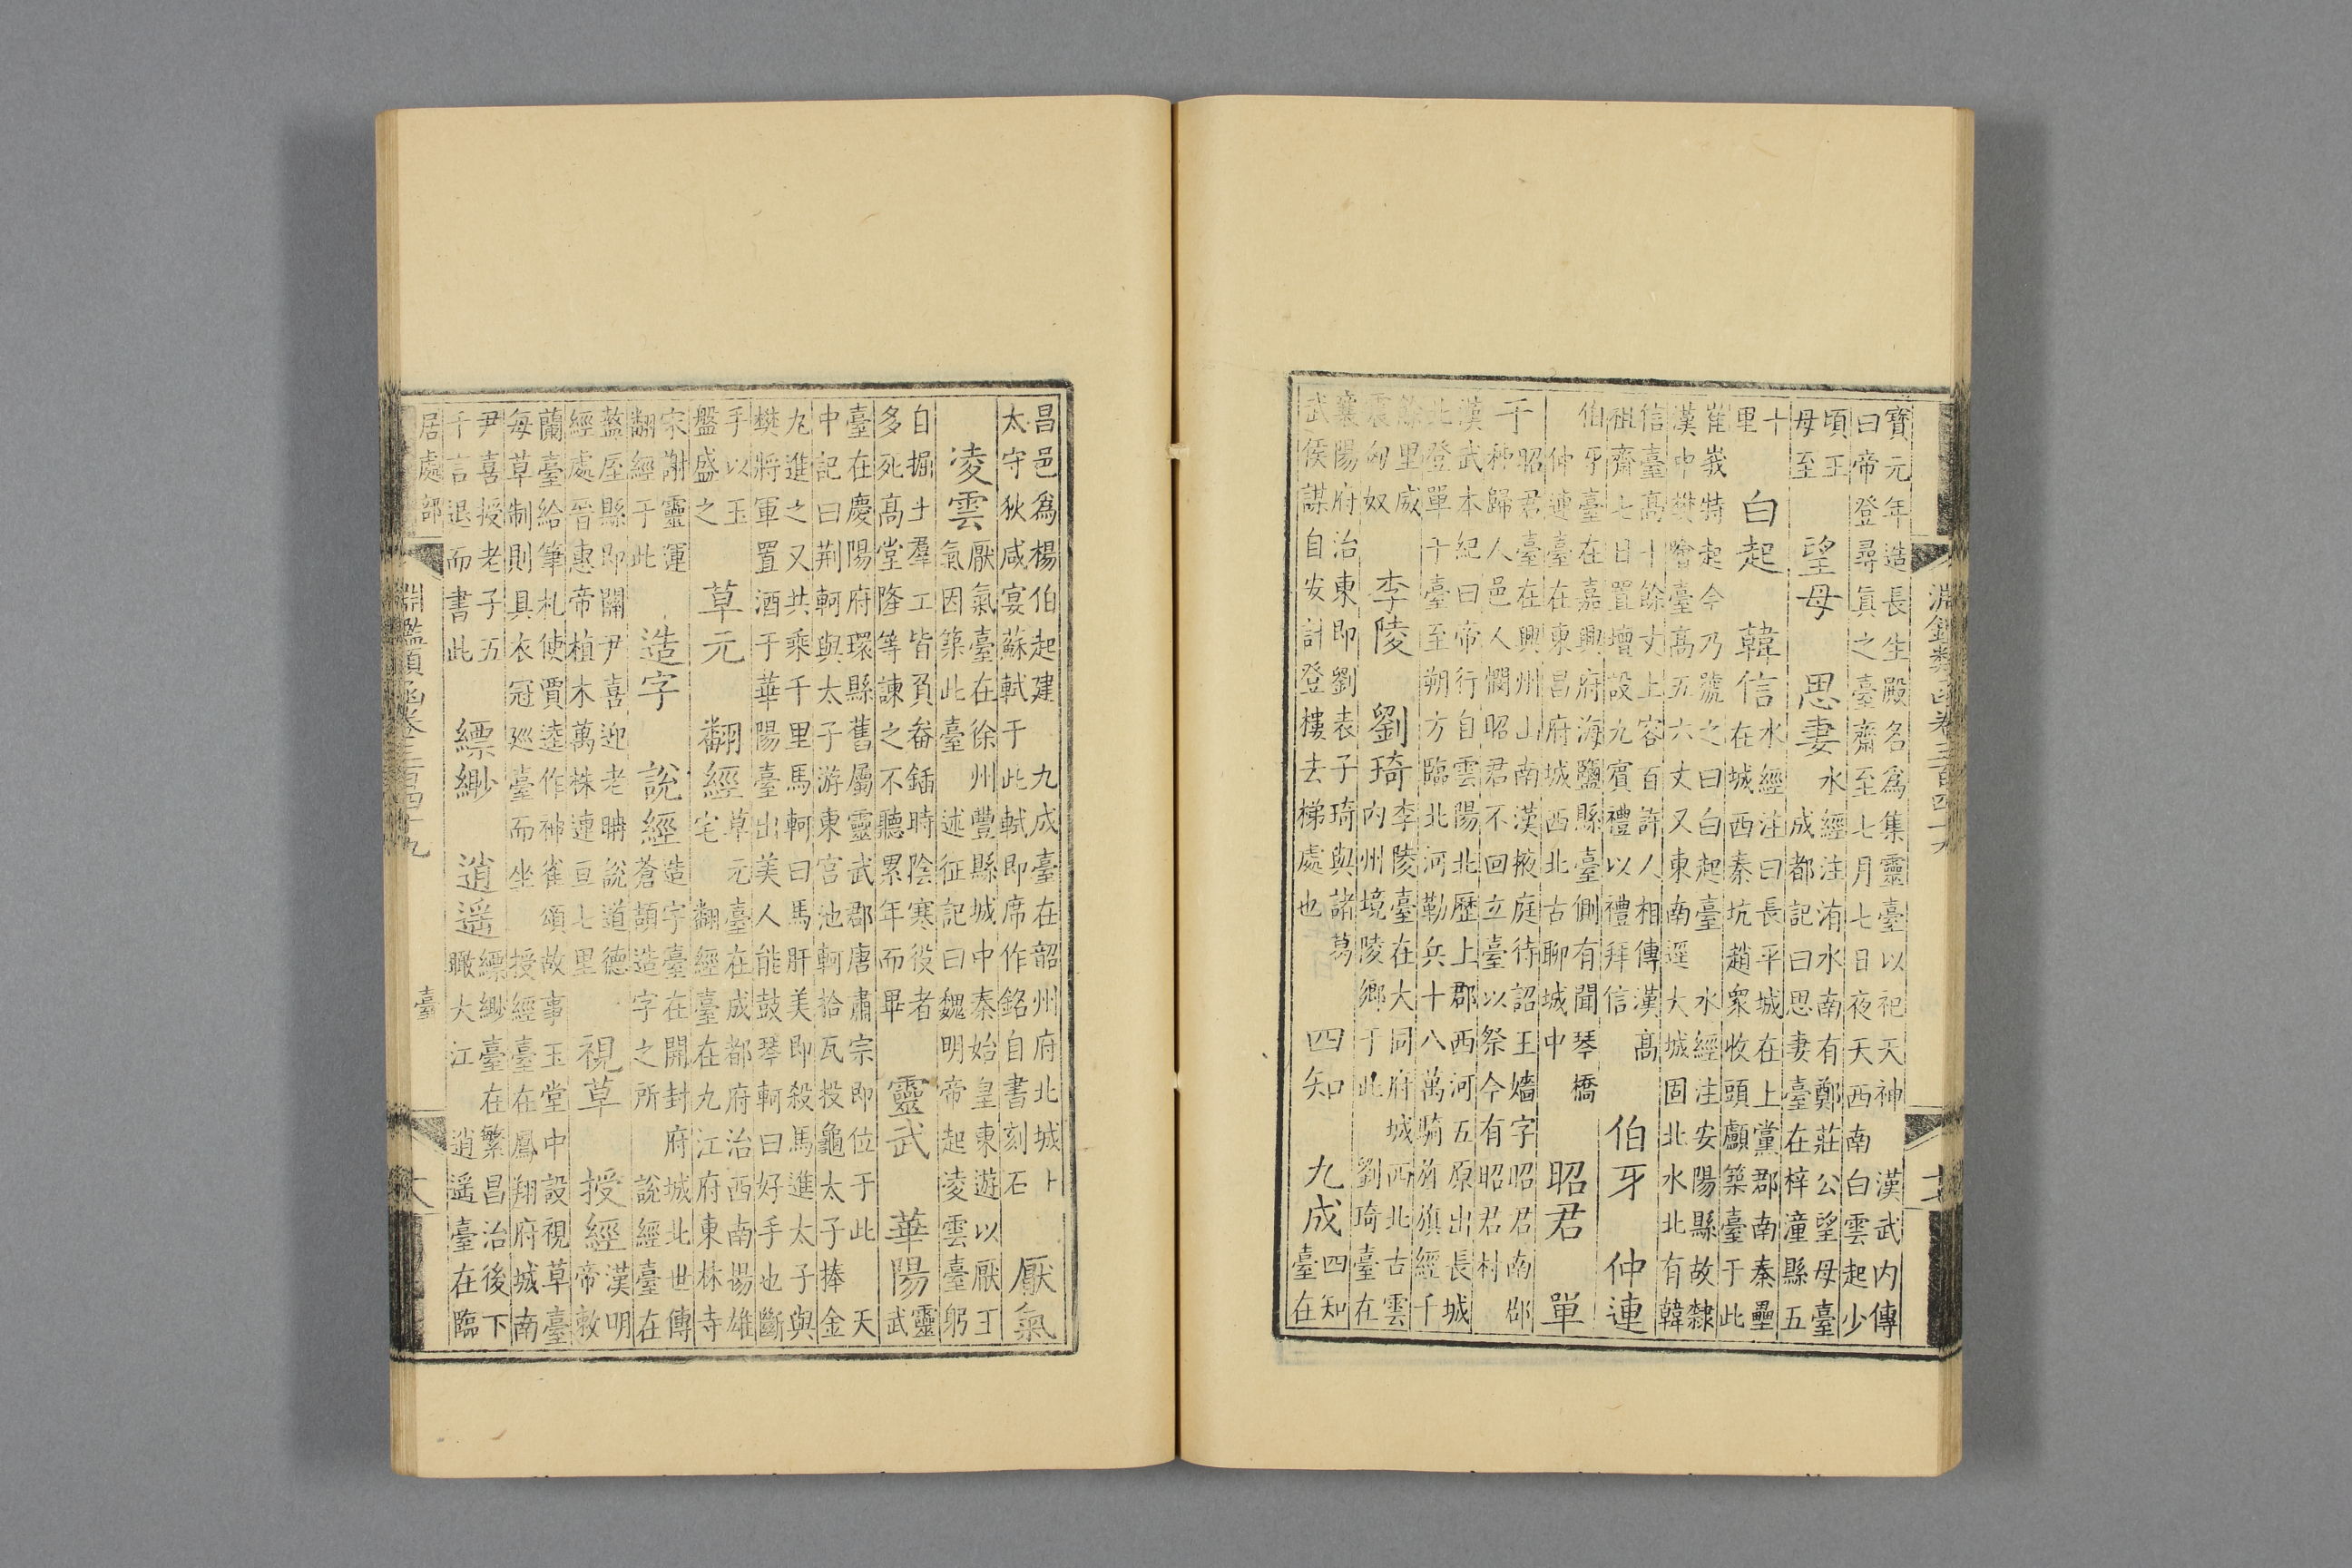 淵鑑類函卷三百四十九
寶元年造長生殿名為集靈臺以祀天神　漢武内傳
曰帝登尋眞之臺齋至七月七日夜天西南白雲起少
頃王
母至
望母　思妻
水經注洧水南有鄭莊公望母臺
成都記曰思妻臺在梓潼縣五
十
里
白起　韓信
水經注曰長平城在上黨郡南秦壘
在城西秦坑趙衆收頭顱築臺于此
崔峩特起今乃號之曰白起臺　水經注安陽縣故隸
漢中樊噲臺高五六丈又東南逕大城固北水北有韓
信臺高十餘丈上容百許人相傳漢高
祖齋七日置壇設九賓禮以禮拜信
伯牙　仲連
伯牙臺在嘉興府海鹽縣臺側有聞琴橋
仲連臺在東昌府城西北古聊城中
昭君　單
于
昭君臺在興州山南漢掖庭待詔王嬙字昭君南郡
秭歸人邑人憫昭君不回立臺以祭今有昭君村
漢武本紀曰帝行自雲陽北歷上郡西河五原出長城
北登單于臺至朔方臨北河勒兵十八萬騎旌旗經千
餘里威
震匈奴
李陵　劉琦
李陵臺在大同府城西北古雲
内州境陵鄉于此　劉琦臺在
襄陽府治東即劉表子琦與諸葛
武侯謀自安計登樓去梯處也
四知　九成
四知
臺在
昌邑爲楊伯起建　九成臺在韶州府北城上
太守狄咸宴蘇軾于此軾即席作銘自書刻石
厭氣
凌雲
厭氣臺在徐州豐縣城中秦始皇東遊以厭王
氣因築此臺　述征記曰魏明帝起凌雲臺躬
自掘土羣工皆負畚鍤時陰寒役者
多死高堂隆等諫之不聽累年而畢
靈武　華陽
靈
武
臺在慶陽府環縣舊屬靈武郡唐肅宗即位于此　天
中記曰荆軻與太子游東宫池軻拾瓦投龜太子捧金
丸進之又共乘千里馬軻曰馬肝美即殺馬進太子與
樊將軍置酒于華陽臺出美人能鼓琴軻曰好手也斷
手以玉
盤盛之
草元　翻經
草元臺在成都府治西南揚雄
宅　翻經臺在九江府東林寺
宋謝靈運
翻經于此
造字　說經
造字臺在開封府城北世傳
蒼頡造字之所　說經臺在
盩厔縣即關尹喜迎老聃說道德
經處晉惠帝植木萬株連亘七里
視草　授經
漢明
帝敕
蘭臺給筆札使賈逵作神雀頌故事玉堂中設視草臺
每草制則具衣冠廵臺而坐　授經臺在鳳翔府城南
尹喜授老子五
千言退而書此
縹緲　逍遥
縹緲臺在繁昌治後下
瞰大江　逍遥臺在臨
淵鑑類函卷三百四十九
居處部
臺